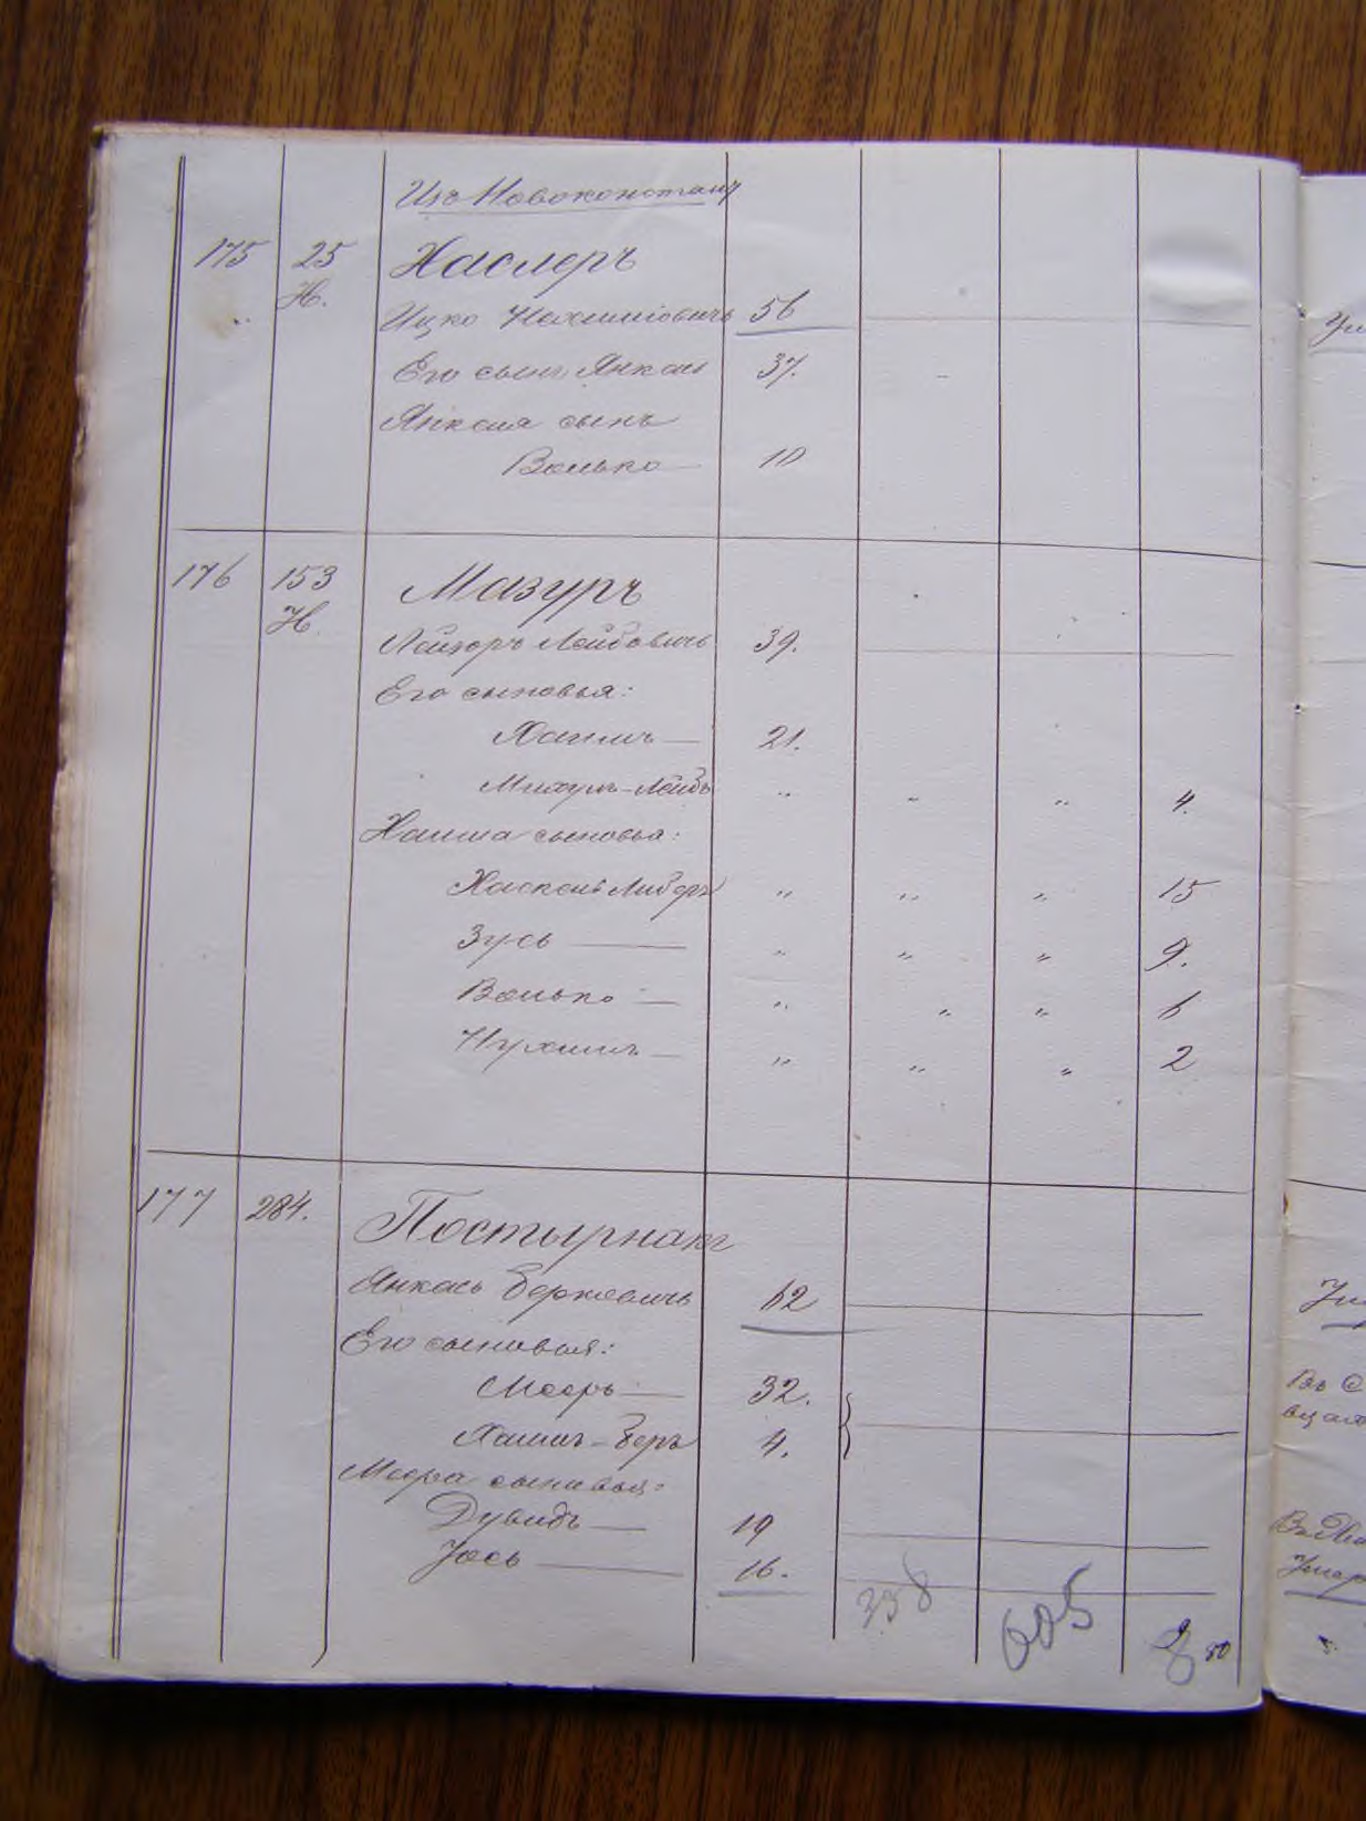 Изъ Новоконстант
175 25 Хаслеръ
Н.
Ицко Нахимовичъ 56
Его сынъ Янкель 37.
Янкеля сынъ
Волько 10
176 153 Мазуръ
Н.
Лейзоръ Лейбовичъ 39.
Его сыновья:
Хаимъ 21.
Михуль-Лейбъ " " " 4.
Хаима сыновья:
Хаскель Либеръ " " " 15
Зусь " " " 9.
Волько " " " 6
Нухимъ " " " 2
177 284. Постырнакъ
Янкель Берковичъ 62
Его сыновья:
Мееръ 32.
Хаимъ-Беръ 4.
Меера сыновья:
Дувидъ 19
Іось 16.
605
80